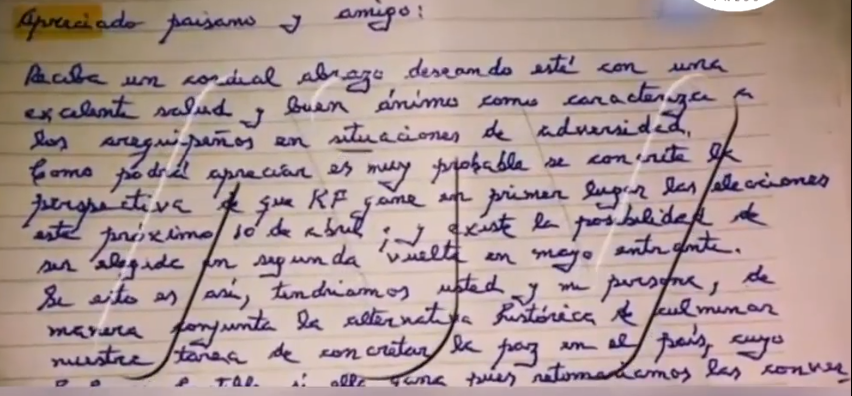 Apreciado paisano y amigo:
Reciba un cordial abrazo deseando esté con una
excelente salud y buen ánimo como caracteriza a
los arequipeños en situaciones de adversidad.
Como podrá apreciar es muy probable se concrete la
perspectiva de que KF gane en primer lugar las elecciones
este próximo 10 de abril, y existe la posibilidad de
ser elegida en segunda vuelta en mayo entrante.
Si esto es así, tendriamos usted y mi persona, de
manera conjunta la alternativa histórica de culminar
nuestra tarea de concretar la paz en el país, cuyo
si ella gana pues retomariamos las conver